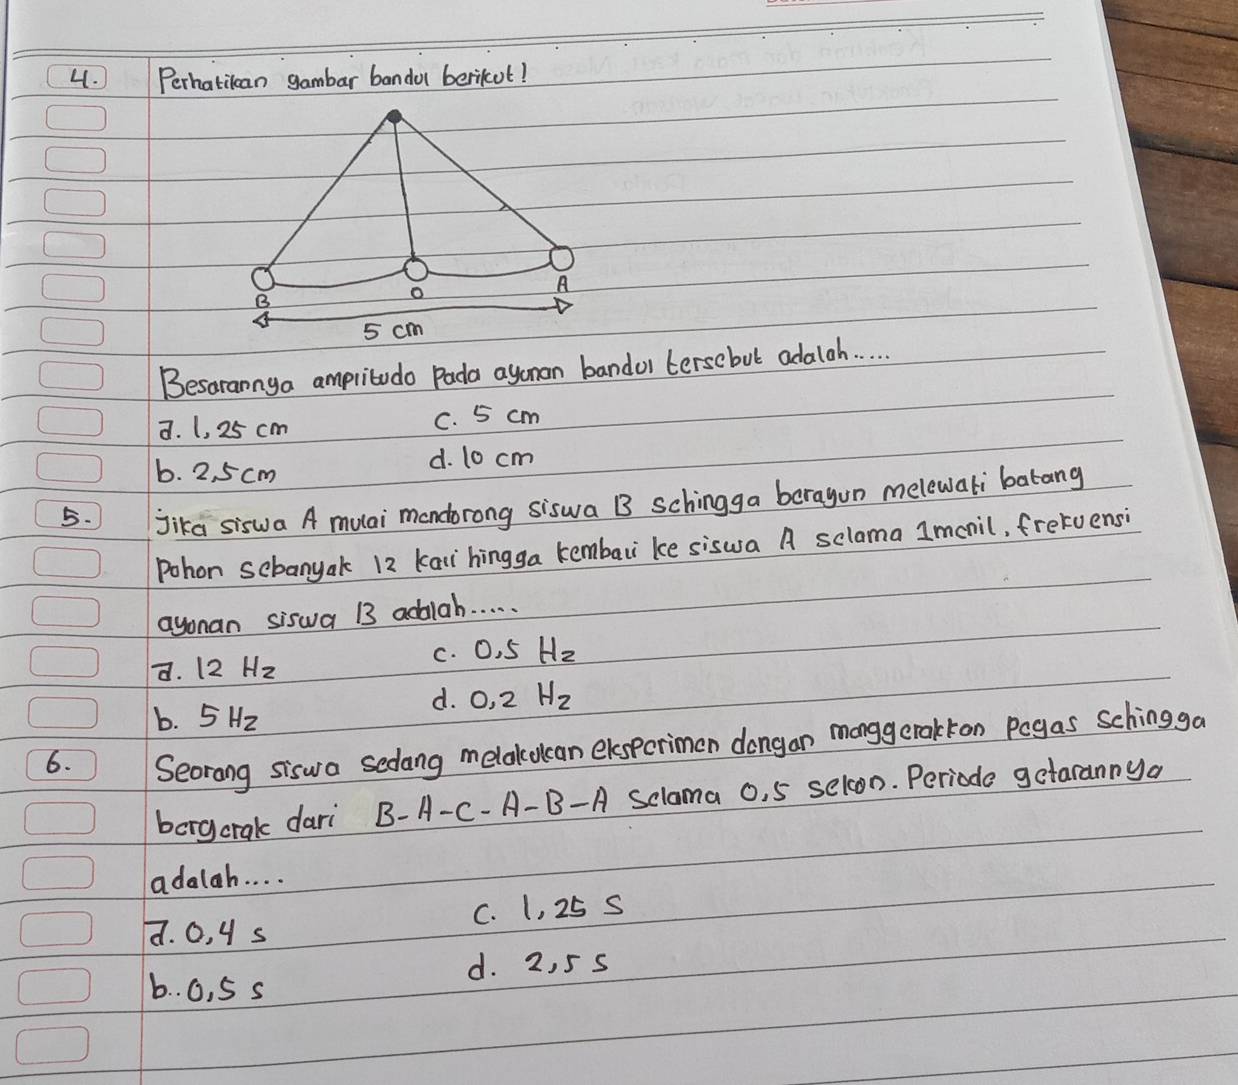 4. Perhatikan gambar bandul berikut!
B O A
5 cm
Besarannya amplitudo pada ayunan bandul tersebut adalah.....
a. 1,25 cm c. 5 cm
b. 2,5 cm d. 10 cm
5. Jika siswa A mulai mendorong siswa B sehingga berayun melewati batang
pohon sebanyak 12 kali hingga kembali ke siswa A selama 1 menit, frekuensi
ayunan siswa B adalah.....
a. 12 Hz c. 0,5 Hz
b. 5 Hz d. 0,2 Hz
6. Seorang siswa sedang melakukan eksperimen dengan menggerakkan pegas sehingga
bergerak dari B-A-C-A-B-A selama 0,5 sekon. Periode getarannya
adalah....
a. 0,4 s c. 1,25 s
b.. 0,5 s d. 2,5 s